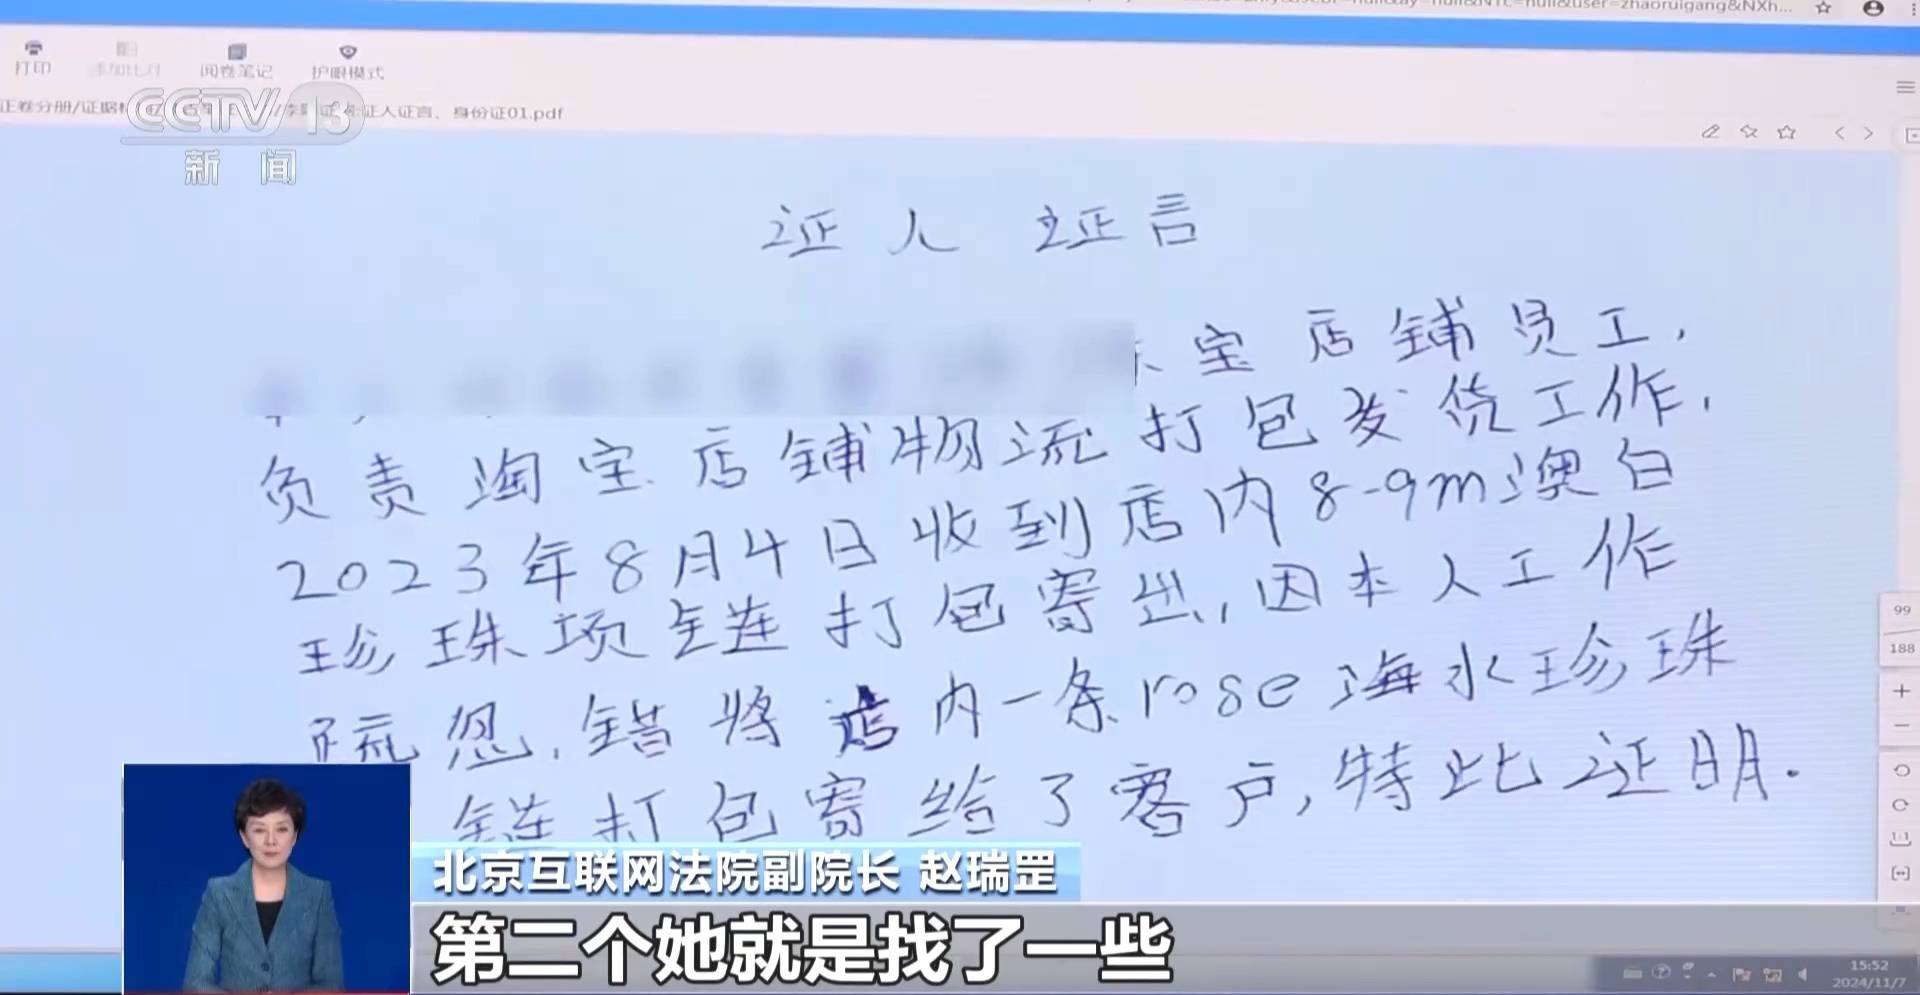 user=zhaoruigang&NXh...
打印
添加比对
阅卷笔记
护眼模式
正卷分册/证据
证人证言、身份证01.pdf
CCTV 13
新闻
证人证言
宝店铺员工,
负责淘宝店铺物流打包发货工作,
2023年8月4日收到店内8-9m澳白
珍珠项链打包寄出,因本人工作
疏忽,错将店内一条rose海水珍珠
链打包寄给了客户,特此证明.
99
188
1:1
北京互联网法院副院长 赵瑞罡
第二个她就是找了一些
15:52
2024/11/7